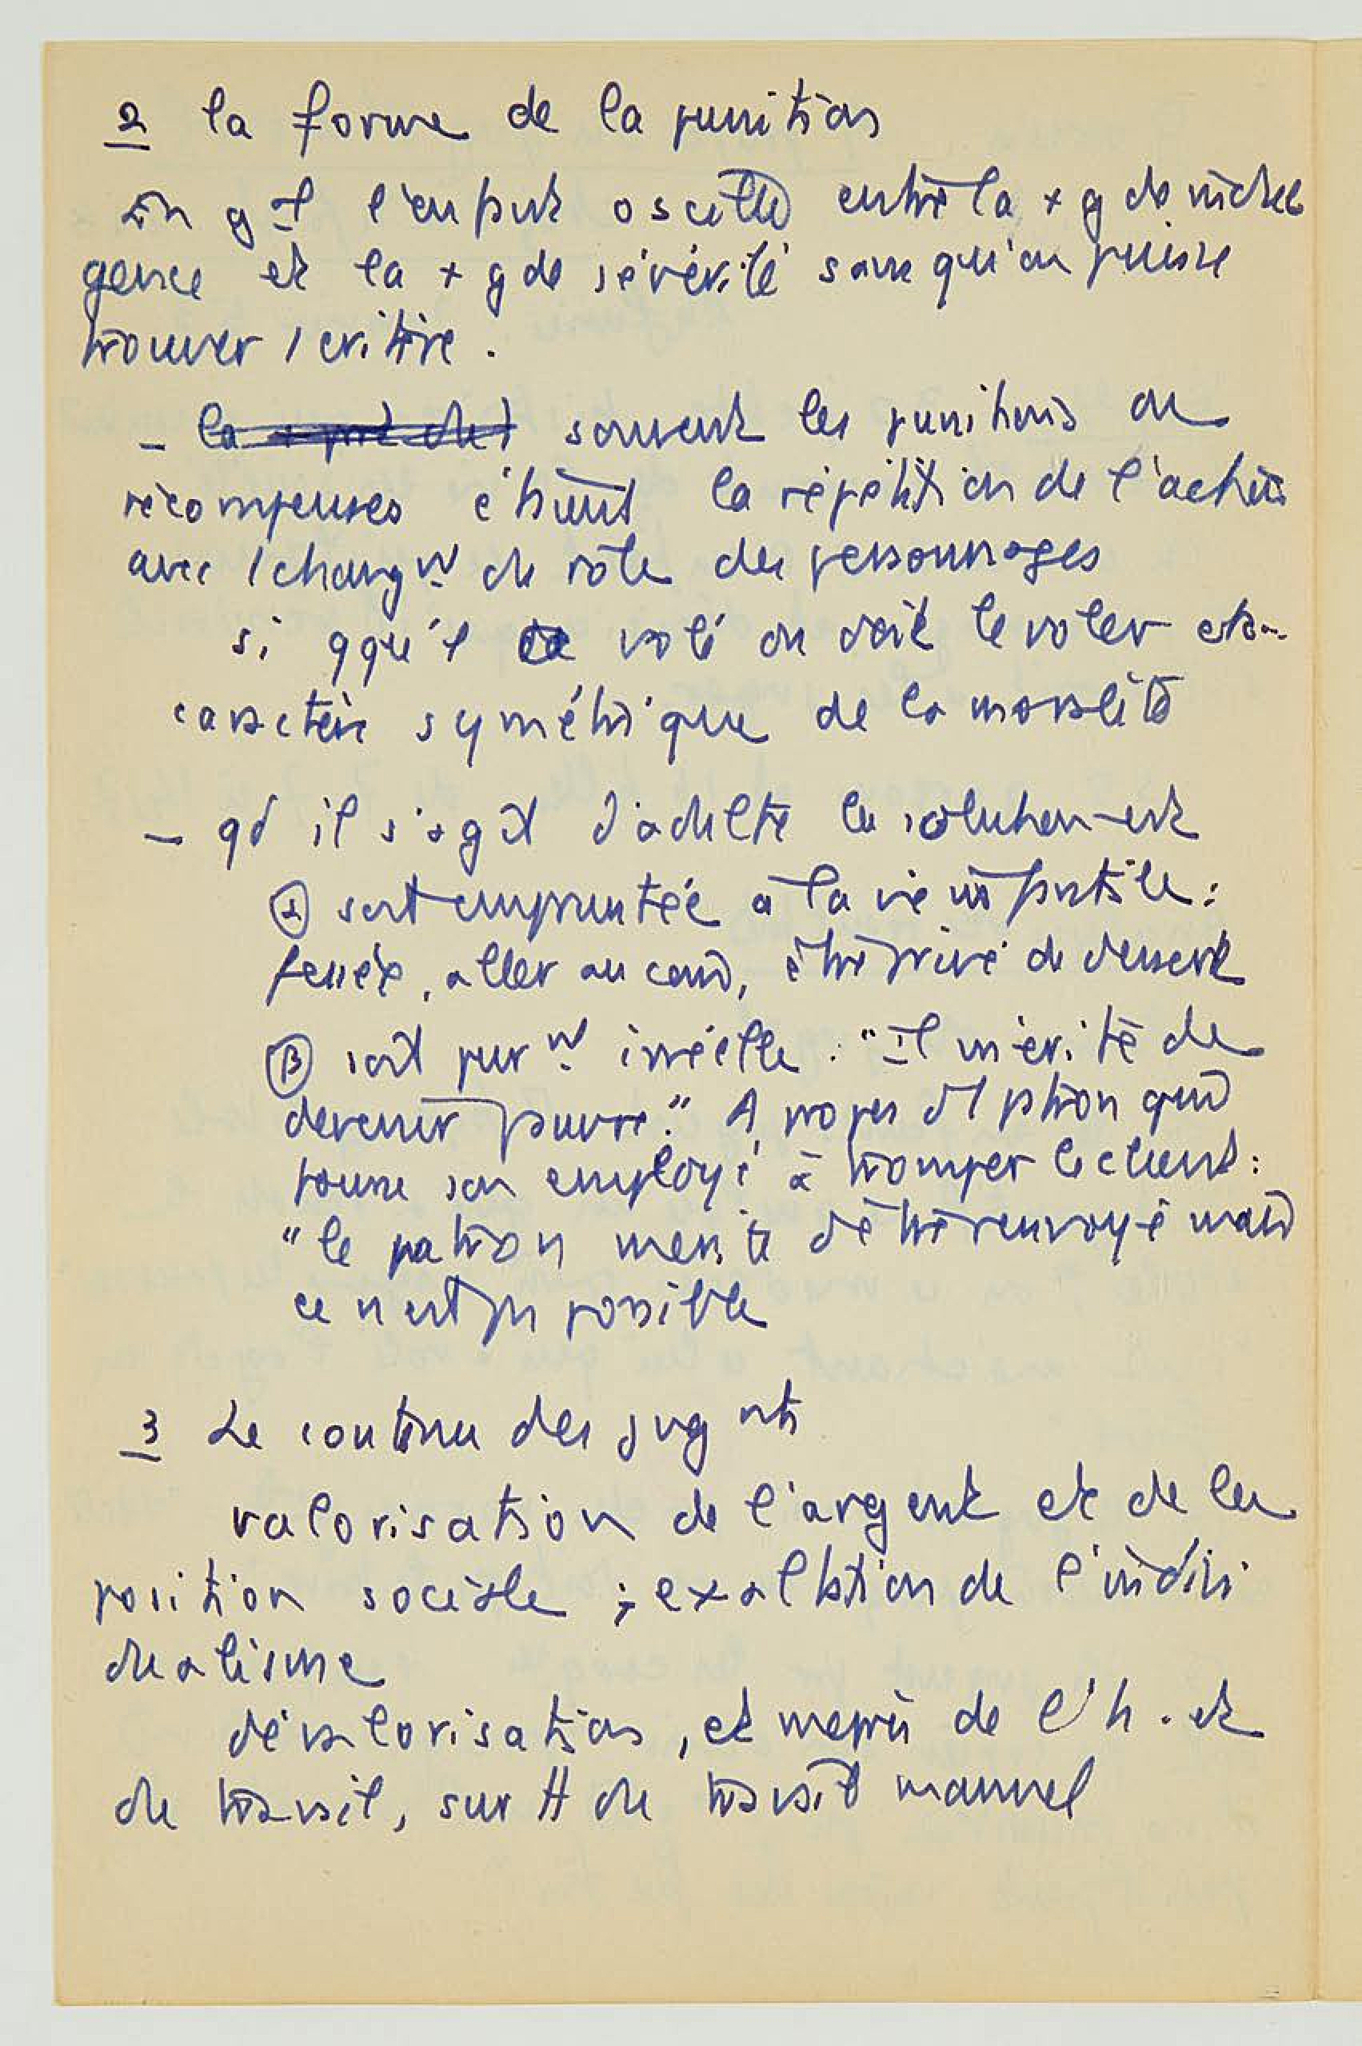 2 la forme de la punition
En gal l'enfant oscille entre la + gde indul
gence et la + gde sévérité sans qu'on puisse
trouver 1 critère.
- souvent les punitions ou
récompenses étaient la répétition de l'action
avec 1 changnt de rôle des personnages
si qqu'1 a volé on doit le voler etc..
caractère symétrique de la moralité
- qd il s'agit d'adulte la solution est
α soit empruntée à la vie infantile :
fessée, aller au coin, être privé de dessert
β soit purnt irréelle : "Il mérite de
devenir pauvre." A propos d'1 patron qui
pousse son employé à tromper le client :
"le patron mérite d'être renvoyé mais
ce n'est pas possible
3 Le contenu des jugnts
valorisation de l'argent et de la
position sociale ; exaltation de l'indivi
dualisme
dévalorisation, et mépris de l'h. et
du travail, surtt du travail manuel